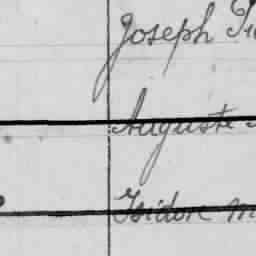 Joseph
Auguste
Isidore